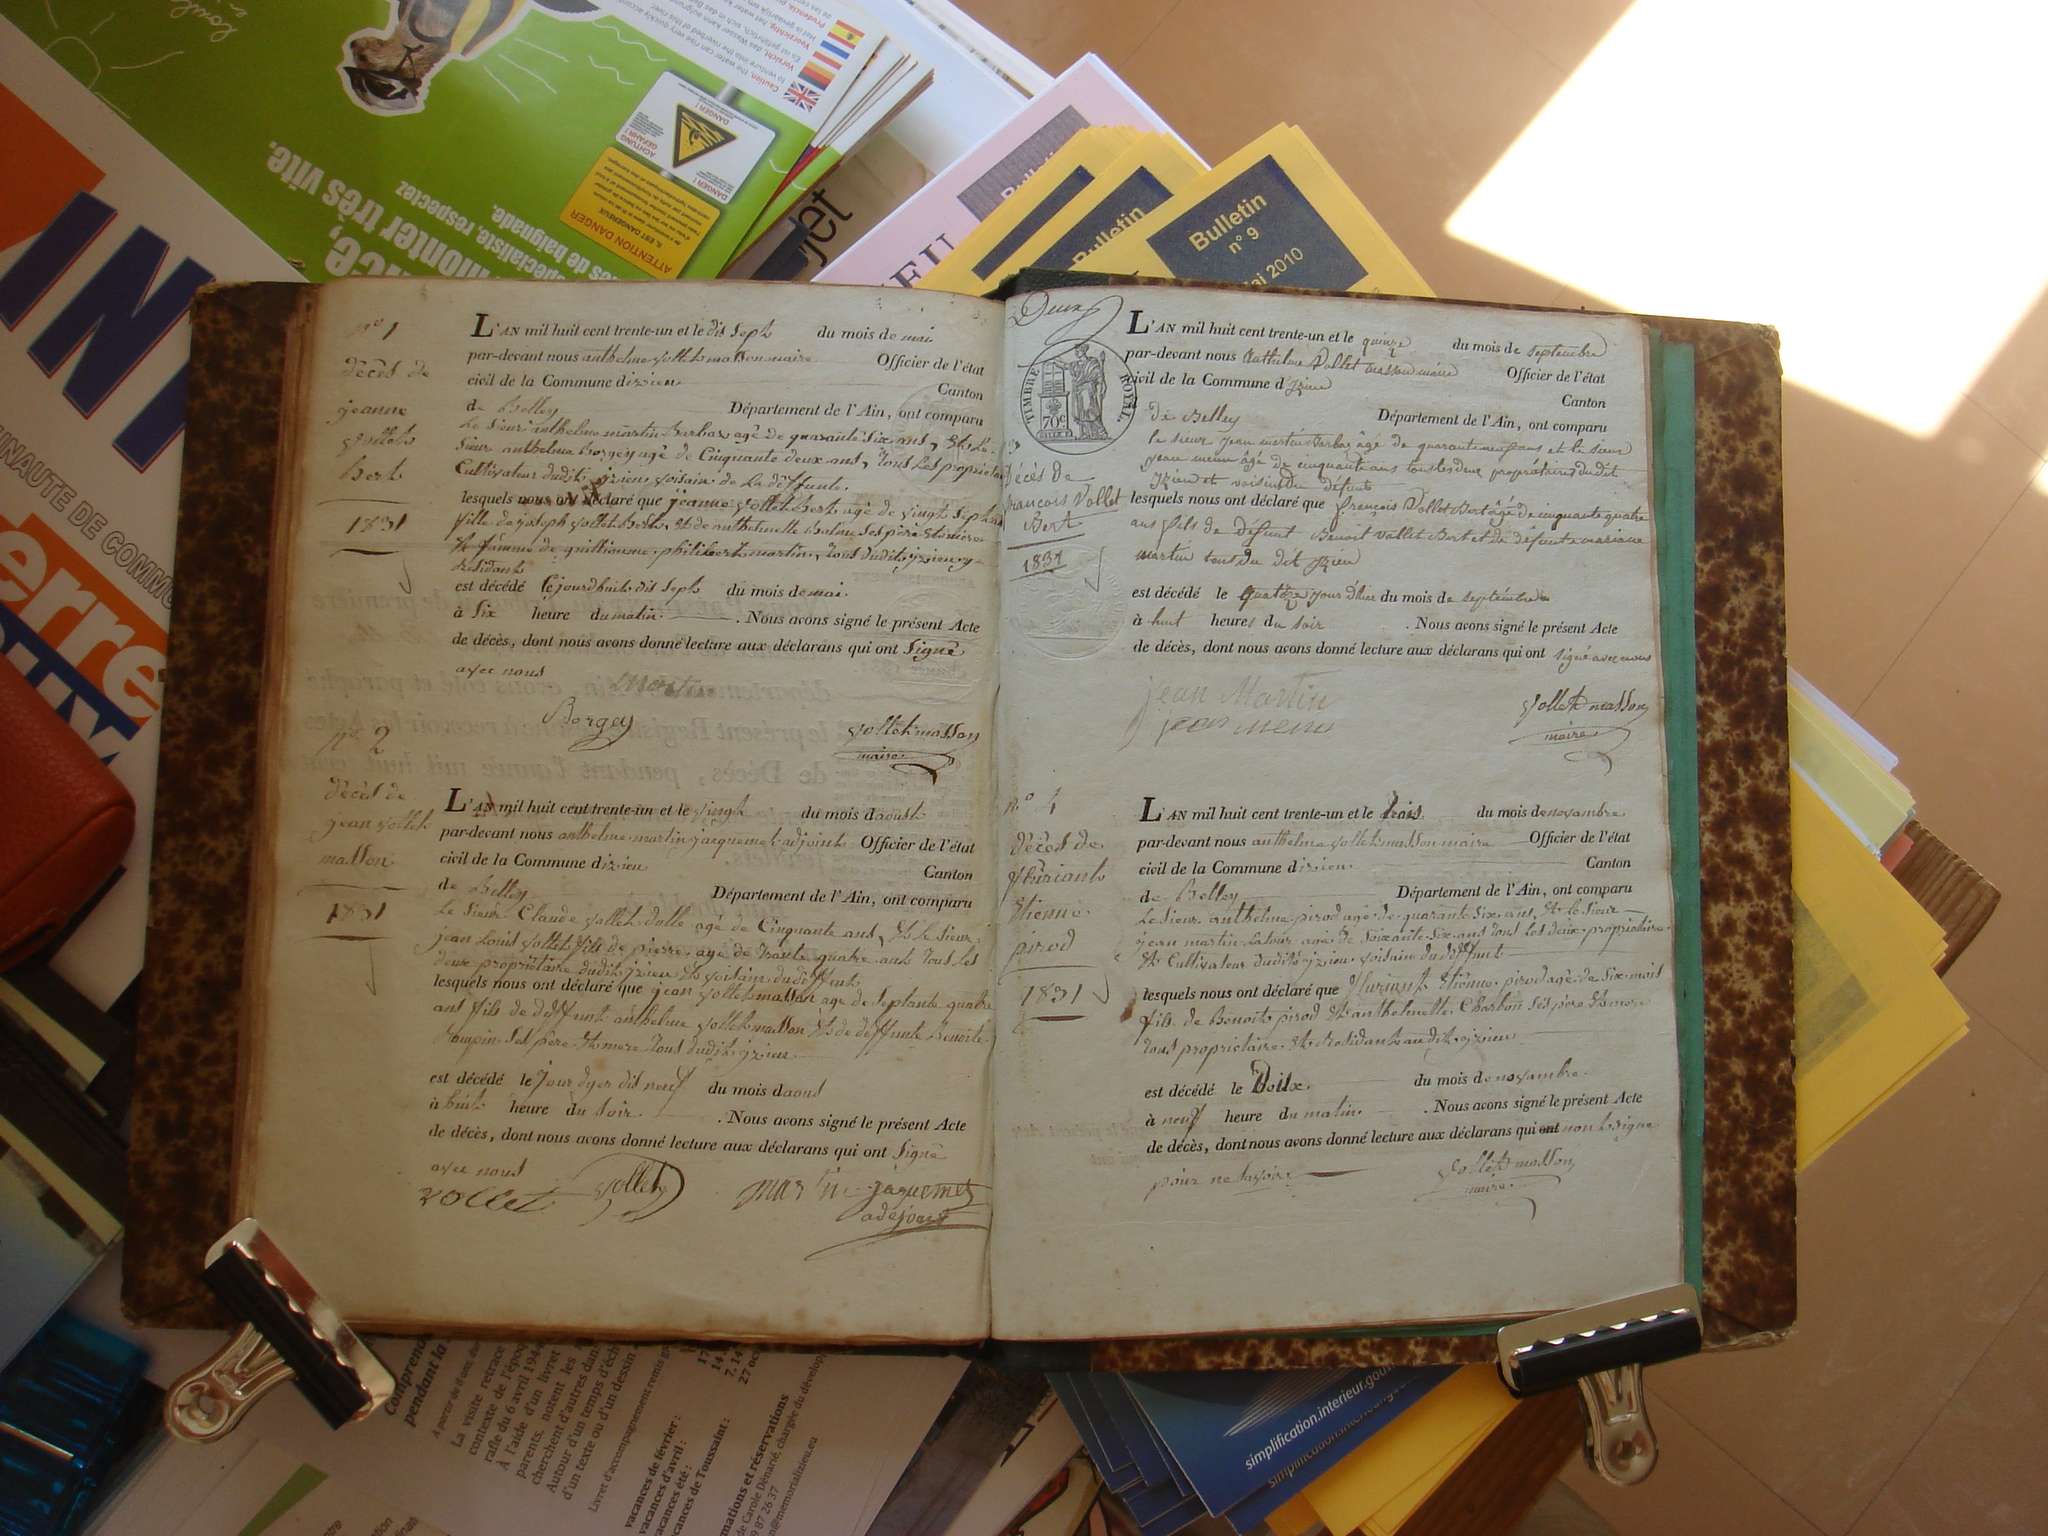 n° 1
décès de
jeanne
vollet
Bert
1831
L'AN mil huit cent trente-un et le dis sept du mois de mai
par-devant nous anthelme vollet masson maire Officier de l'état
civil de la Commune d'izieu Canton
de Belley Département de l'Ain, ont comparu
Le sieur anthelme martin Barbaz agé de quarante six ans, Et Le
sieur anthelme Borgey agé de Cinquante deux ans, Tous Les proprietaire
Cultivateur dudit izieu voisain de La deffunte.
lesquels nous ont déclaré que jeanne vollet Bert agé de vingt sept ans
fille de joseph vollet Bert, Et de anthelmelle ses père Et mère
Et femme de guilliaume philibert martin, Tous dudit izieu y
residants
est décédé le jourdhuit dis sept du mois de mai.
à six heure du matin. . Nous avons signé le présent Acte
de décès, dont nous avons donné lecture aux déclarans qui ont Signé
avec nous
martin
Borgey vollet masson
maire
n° 2
décès de
jean vollet
masson
1831
L'AN mil huit cent trente-un et le vingt du mois d'aoust
par-devant nous anthelme martin jacquemet adjoint Officier de l'état
civil de la Commune d'izieu Canton
de Belley Département de l'Ain, ont comparu
Le sieur Claude vollet dolle agé de Cinquante ans, Et Le sieur
jean Louis vollet fils de pierre agé de Trante quatre ans Tous Les
deux propriétaire dudit izieu Et voisain du deffunt
lesquels nous ont déclaré que jean vollet masson agé de septante quatre
ans fils de deffunt anthelme vollet masson Et de deffunte Benoite
ses père Et mere Tous dudit izieu
est décédé le Jour dyer dis neuf du mois d'aoust
à huit heure du soir. . Nous avons signé le présent Acte
de décès, dont nous avons donné lecture aux déclarans qui ont Signé
avec nous
vollet vollet martin jaquemet
adejoint
Deux
TIMBRE ROYAL
70c
n° 3
Décès de
françois Vollet
Bert
1831
L'AN mil huit cent trente-un et le quinze du mois de septembre
par-devant nous Anthelme Vollet masson maire Officier de l'état
civil de la Commune d'Izieu Canton
de Belley Département de l'Ain, ont comparu
le sieur jean martin Barbaz âgé de quarante neuf ans et le sieur
jean menu âgé de cinquante ans tous les deux propriétaires du dit
Izieu et voisin du défunt
lesquels nous ont déclaré que françois Vollet Bert âgé de cinquante quatre
ans fils de Défunt Benoit Vollet Bert et de défunte mariane
martin tous du dit Izieu
est décédé le quatoze jour d'hier du mois de septembre
à huit heures du soir . Nous avons signé le présent Acte
de décès, dont nous avons donné lecture aux déclarans qui ont signé avec nous
jean Martin
jean menu
vollet masson
maire
n° 4
décès de
fluriant
Etienne
pirod
1831
L'AN mil huit cent trente-un et le trois du mois de novambre
par-devant nous anthelme vollet masson maire Officier de l'état
civil de la Commune d'izieu Canton
de Belley Département de l'Ain, ont comparu
Le sieur anthelme pirod agé de quarante six ans, Et Le sieur
jean martin Latour agé de soixante six ans Tous Les deux propriétaire
Et Cultivateur dudit izieu voisain du deffunt
lesquels nous ont déclaré que fluriant Etienne pirod agé de six mois
fils de Benoit pirod Et anthelmelle Charbon ses père Et mere
Tous propriétaire Et residant audit izieu
est décédé le Deux du mois de novambre.
à neuf heure du matin. . Nous avons signé le présent Acte
de décès, dont nous avons donné lecture aux déclarans qui ont non Signé
pour ne savoir
vollet masson
maire
Bulletin
Bulletin
n° 9
Mai 2010
ATTENTION DANGER
DANGER !
ACHTUNG
GEFAHR !
DANGER !
monter très vite.
respectez
de baignade.
Comprendre
pendant la
La visite retrace
contexte de l'époque
rafle du 6 avril 1944
À l'aide d'un livret
parents, notent les
cherchent d'autres dans
Autour d'un temps d'éch
d'un texte ou d'un dessin.
Livret d'accompagnement remis
vacances de février :
vacances d'avril :
vacances été :
vacances de Toussaint :
27 oc
mations et réservations
de Carole Dénarié, chargée du dévelop
87 26 37
@memorializieu.eu
simplification.interieur.gou